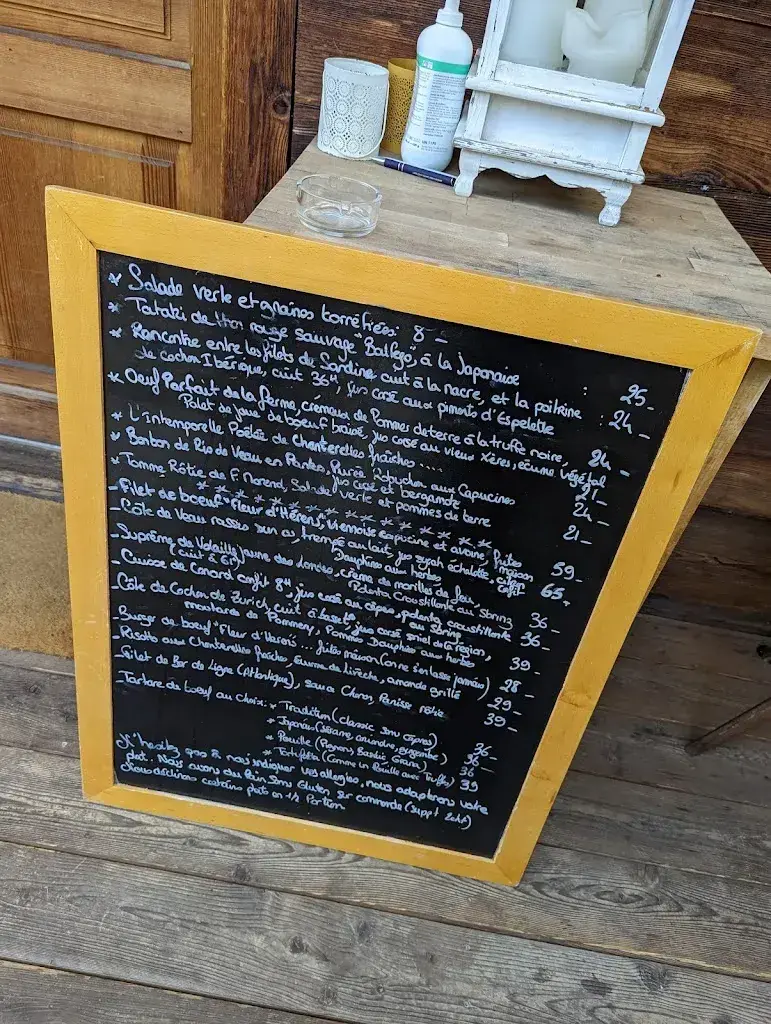 * Salade verte et graines torréfiées : 8 -
* Tataki de thon rouge sauvage "Balfegó", à la Japonaise : 25.-
* Rencontre entre les filets de Sardine cuit à la nacre, et la poitrine
de cochon Ibérique, cuit 36H, jus corsé aux piments d'Espelette : 24 -
* Oeuf Parfait de la ferme, crémeux de Pommes de terre à la truffe noire,
Palet de joue de boeuf braisé, jus corsé au vieux Xérès, écume végétal 24 -
* L'intemporelle Poêlée de Chanterelles fraîches .... 21 -
* Bonbon de Ris de Veau en Panko, Purée Robuchon aux Capucines
jus corsé et bergamote 24 -
* Tomme Rôtie de F. Morend, Salade verte et pommes de terre 21 -
* * * * * * * * * * * * *
- Filet de boeuf "Fleur d'Hérens", viennoise capucine et avoine, frites maison 59 -
- Côte de Veau rassie, trempé au lait, jus syrah échalotte, café
Dauphine aux herbes 65.
- Suprême de Volaille Jaune des Landes, crème de morilles de feu,
(cuit à 61°) Polenta Croustillante au sbrinz 36 -
- Cuisse de Canard confit 8H, jus corsé au cèpes, Polenta croustillante
au sbrinz 36 -
- Côte de Cochon de Zurich, cuit à basse T°, jus corsé, miel de la région,
moutarde de Pommery, Pommes Dauphine aux herbes 39 -
- Burger de boeuf "Fleur d'Hérens"... frites maison (on ne s'en lasse jamais) 28 -
- Risotto aux Chanterelles fraîches, écume de livèche, amande grillé 29 -
- Filet de Bar de Ligne (Atlantique), sauce Choron, Panisse rôtie 39 -
- Tartare de boeuf au Choix: * Tradition (classic sans câpres) 36 -
* Japonais (Sésame, coriandre, gingembre) 36 -
* Pouille (Pignons, Basilic, Grana) 36
* Estufette (Comme un Pouille avec Truffes) 39
N'hésitez pas à nous indiquer vos allergies, nous adapterons votre
plat. Nous avons du Pain Sans Gluten sur commande (suppt 2chf)
Nous déclinons certains plats en 1/2 Portion